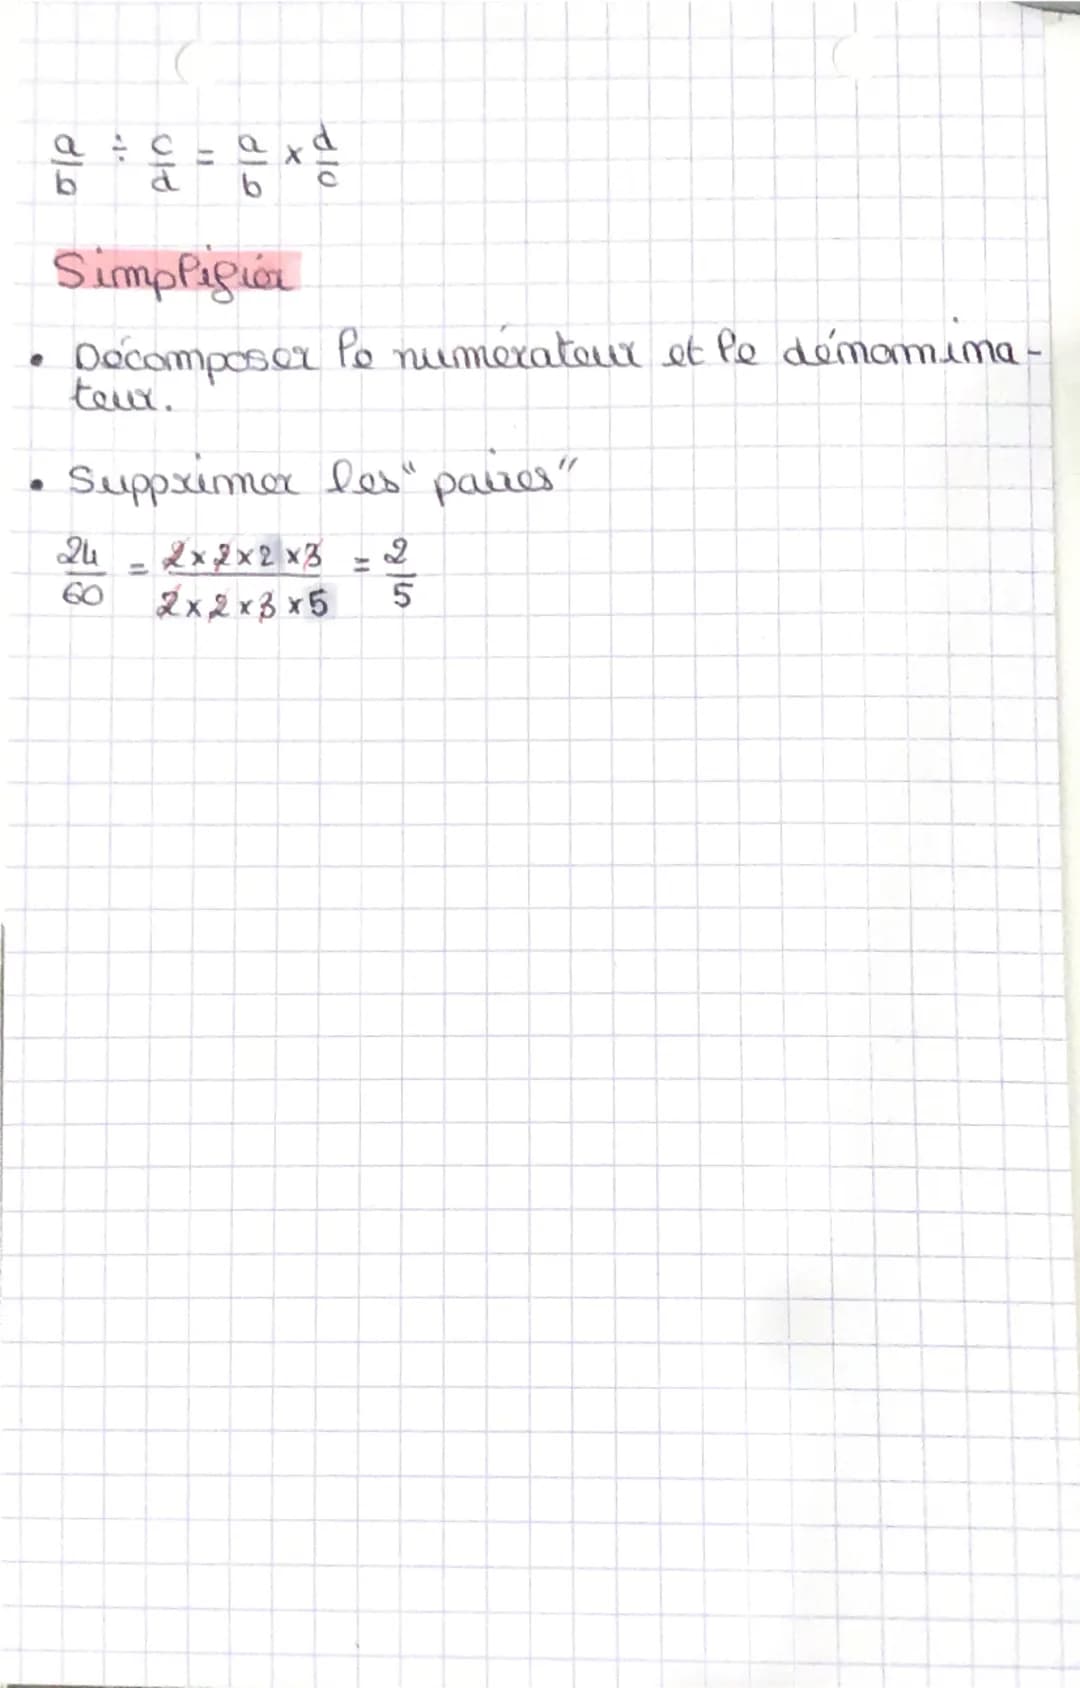 a/b ÷ c/d = a/b × d/c
Simplifier
• Décomposer le numérateur et le dénomina-
teur.
• Supprimer les "paires"
24/60 = 2×2×2×3 / 2×2×3×5 = 2/5